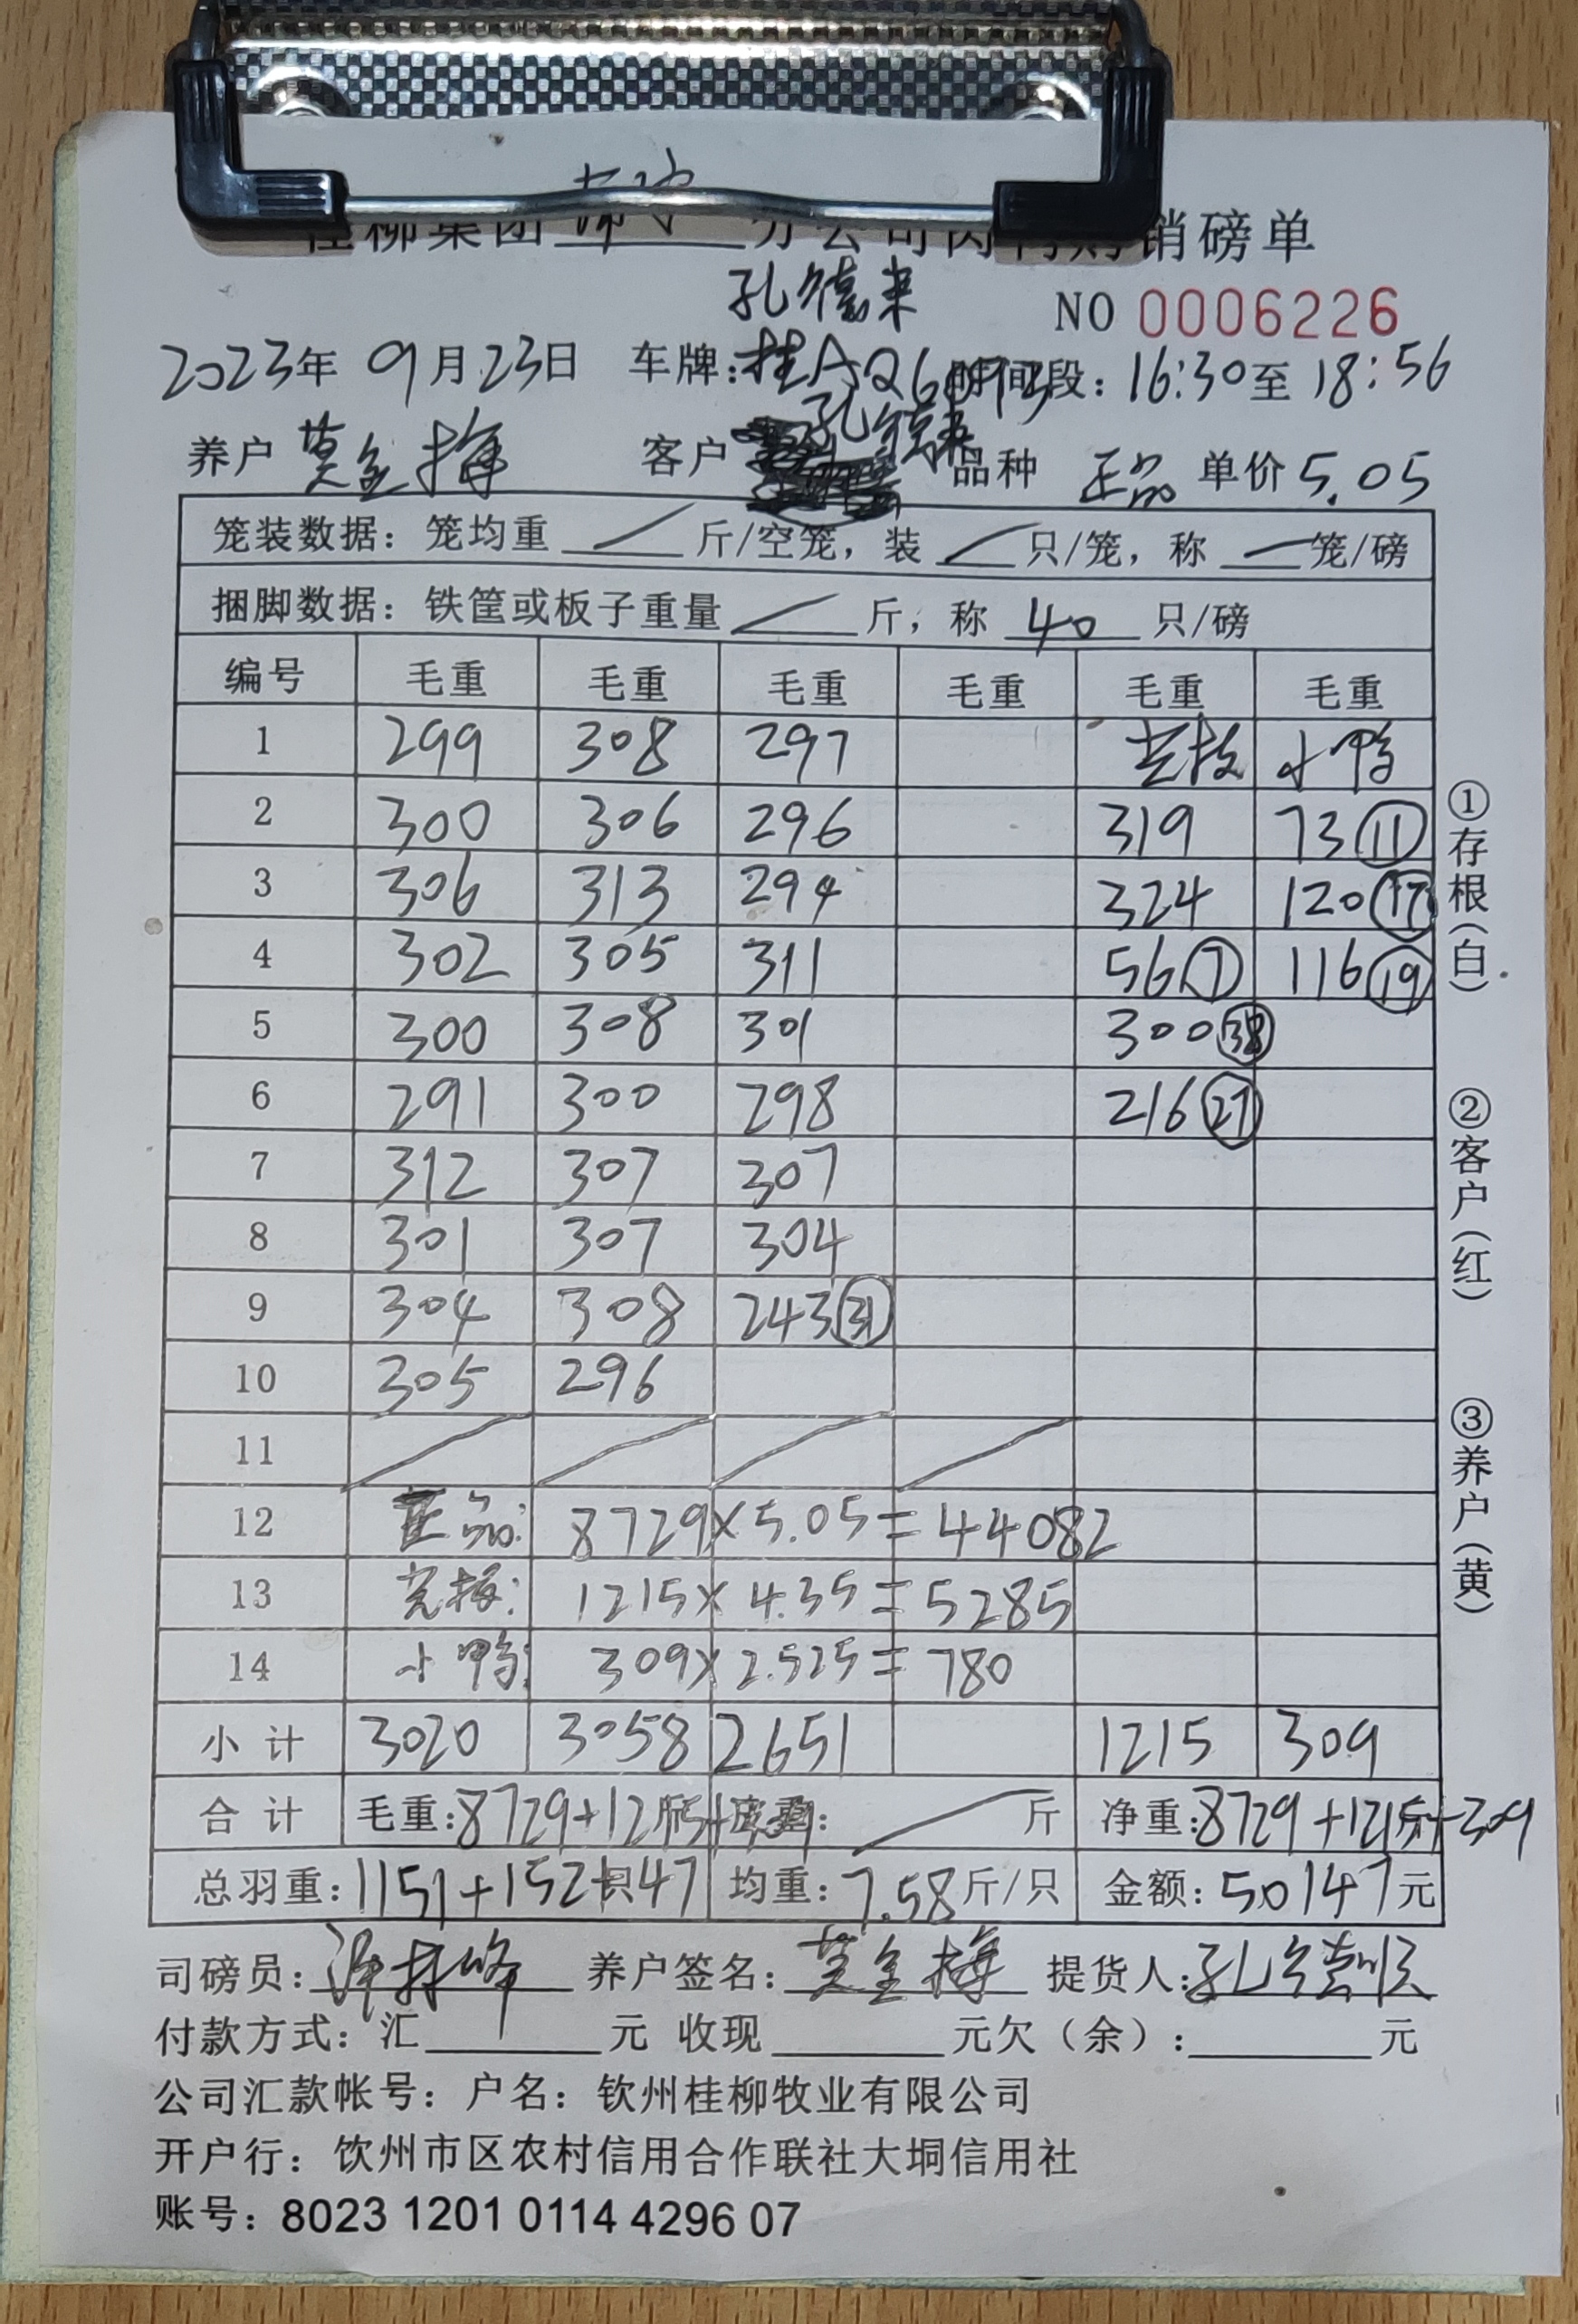 桂柳集团 分公司肉鸭购销磅单
孔德来
NO 0006226
2023年 09月23日 车牌:桂AQ6093 时间段:16:30至18:56
养户 莫金梅 客户 孔德来 品种 正品 单价 5.05
笼装数据:笼均重 / 斤/空笼,装 / 只/笼,称 / 笼/磅
捆脚数据:铁筐或板子重量 / 斤,称 40 只/磅
编号 毛重 毛重 毛重 毛重 毛重 毛重
1 299 308 297 小鸭
2 300 306 296 319 73 ⑪
3 306 313 294 324 120 ⑰
4 302 305 311 56 ⑦ 116 ⑲
5 300 308 301 300 ㊳
6 291 300 298 216 ㉗
7 312 307 307
8 301 307 304
9 304 308 243 ㉛
10 305 296
11 / / / /
12 正品: 8729×5.05=44082
13 1215×4.35=5285
14 小鸭: 309×2.525=780
小计 3020 3058 2651 1215 309
合计 毛重:8729+1215+309斤 皮重: / 斤 净重:8729+1215+309斤
总羽重:1151+152+47只 均重:7.58斤/只 金额:50147元
司磅员: 养户签名:莫金梅 提货人:孔德顺
付款方式:汇 元 收现 元欠(余): 元
公司汇款帐号:户名:钦州桂柳牧业有限公司
开户行:饮州市区农村信用合作联社大垌信用社
账号:8023 1201 0114 4296 07
①存根(白)
②客户(红)
③养户(黄)